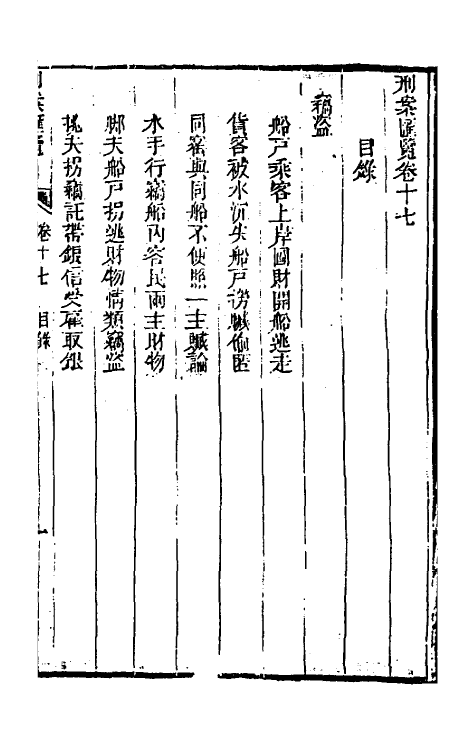 刑案匯覽卷十七
目錄
竊盜
船戶乘客上岸圖財開船逃走
貨客被水沉失船戶撈贓偷匿
同窰與同船不便照一主贓論
水手行竊船內客民兩主財物
脚夫船戶拐逃財物情類竊盜
挑夫拐竊託帶銀信受雇取銀
刑案匯覽 卷十七 目錄 一